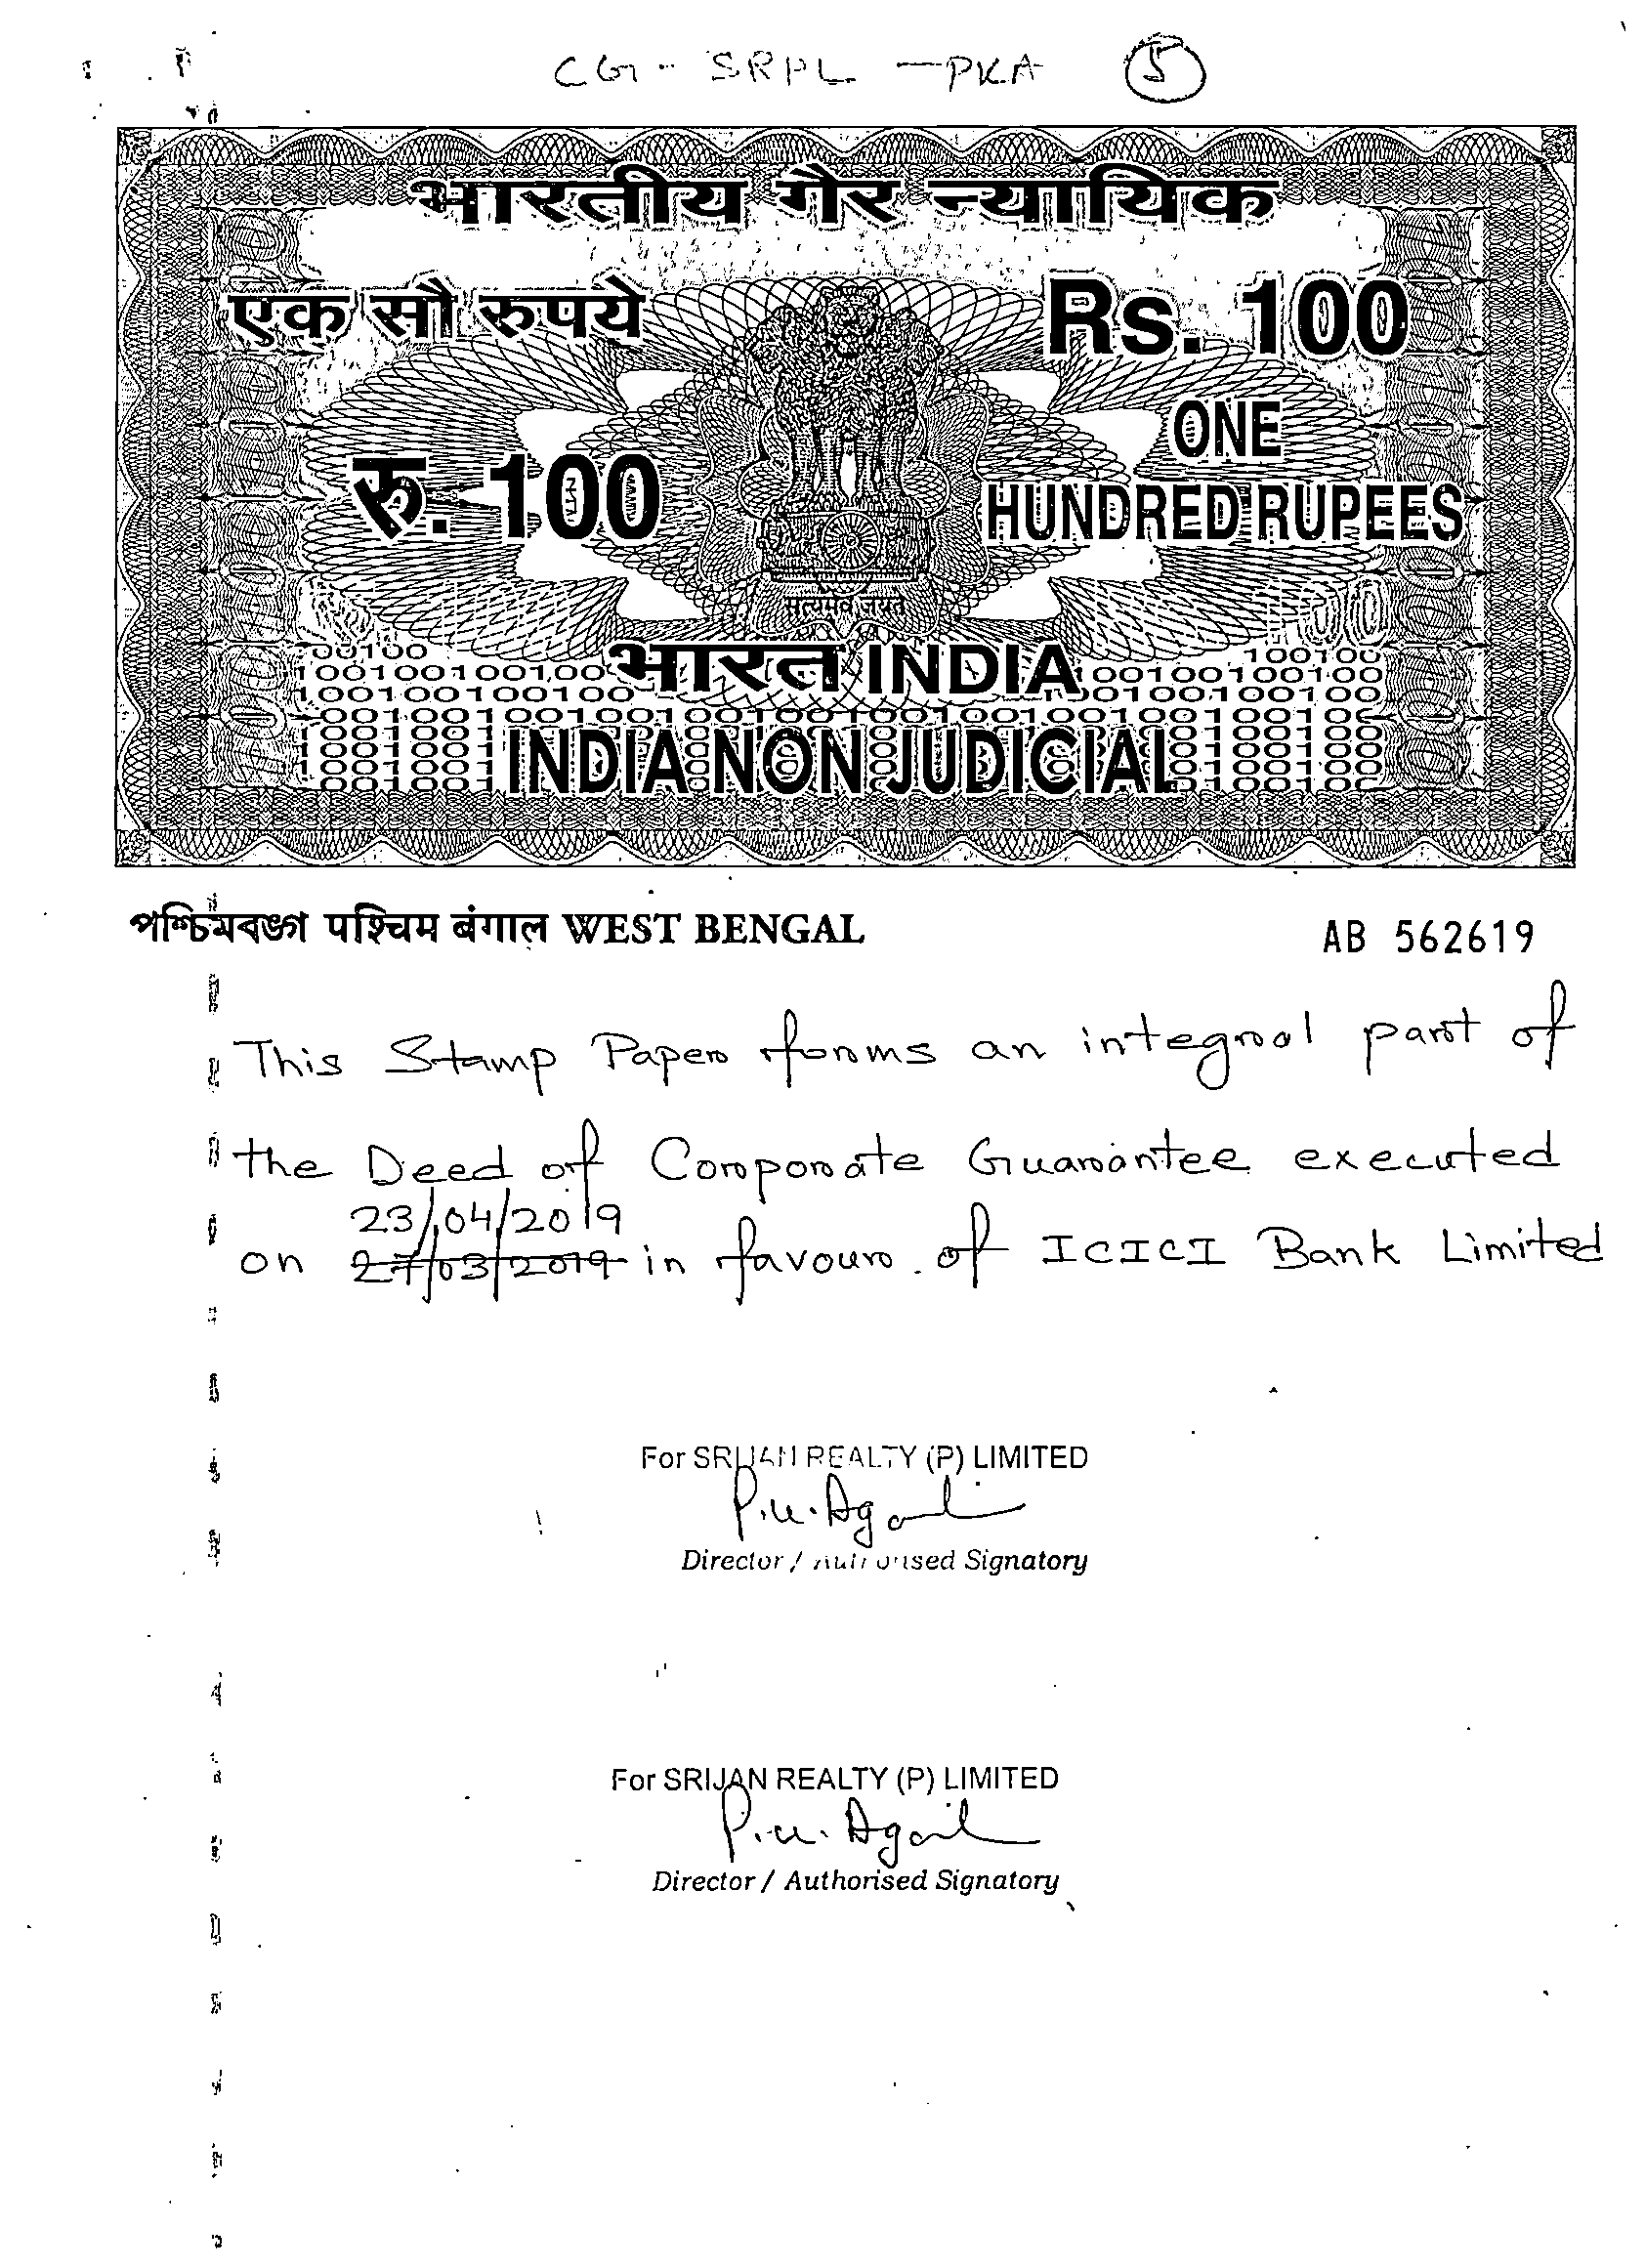 CG - SRPL - PKA 5
भारतीय गैर न्यायिक
एक सौ रुपये Rs. 100
रु. 100 ONE
HUNDRED RUPEES
सत्यमेव जयते
भारत INDIA
INDIA NON JUDICIAL
পশ্চিমবঙ্গ पश्चिम बंगाल WEST BENGAL AB 562619
This Stamp Paper forms an integral part of
the Deed of Corporate Guarantee executed
23/04/2019
on 27/03/2019 in favour of ICICI Bank Limited
For SRIJAN REALTY (P) LIMITED
P.K. Agarwal
Director / Authorised Signatory
For SRIJAN REALTY (P) LIMITED
P.K. Agarwal
Director / Authorised Signatory